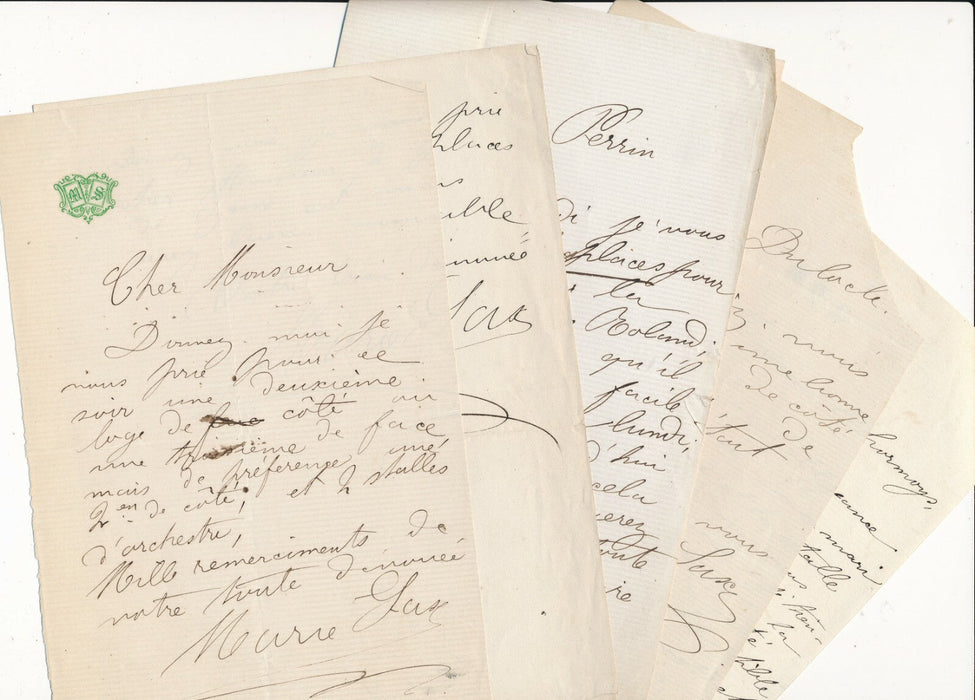 M S
Cher Monsieur,
Donnez moi je
vous prie pour ce
soir une deuxième
loge de côté ou
une troisième de face
mais de préférence une
2en de côté, et 2 stalles
d'orchestre,
Mille remerciments de
votre toute dévouée
Marie Sax
prie
places
Sax
Perrin
di je vous
places pour
la
Roland,
qu'il
facile
lundi,
d'hui
cela
toute
re
vous
une bonne
de côté
de
tant
vous
Sax
mari
la